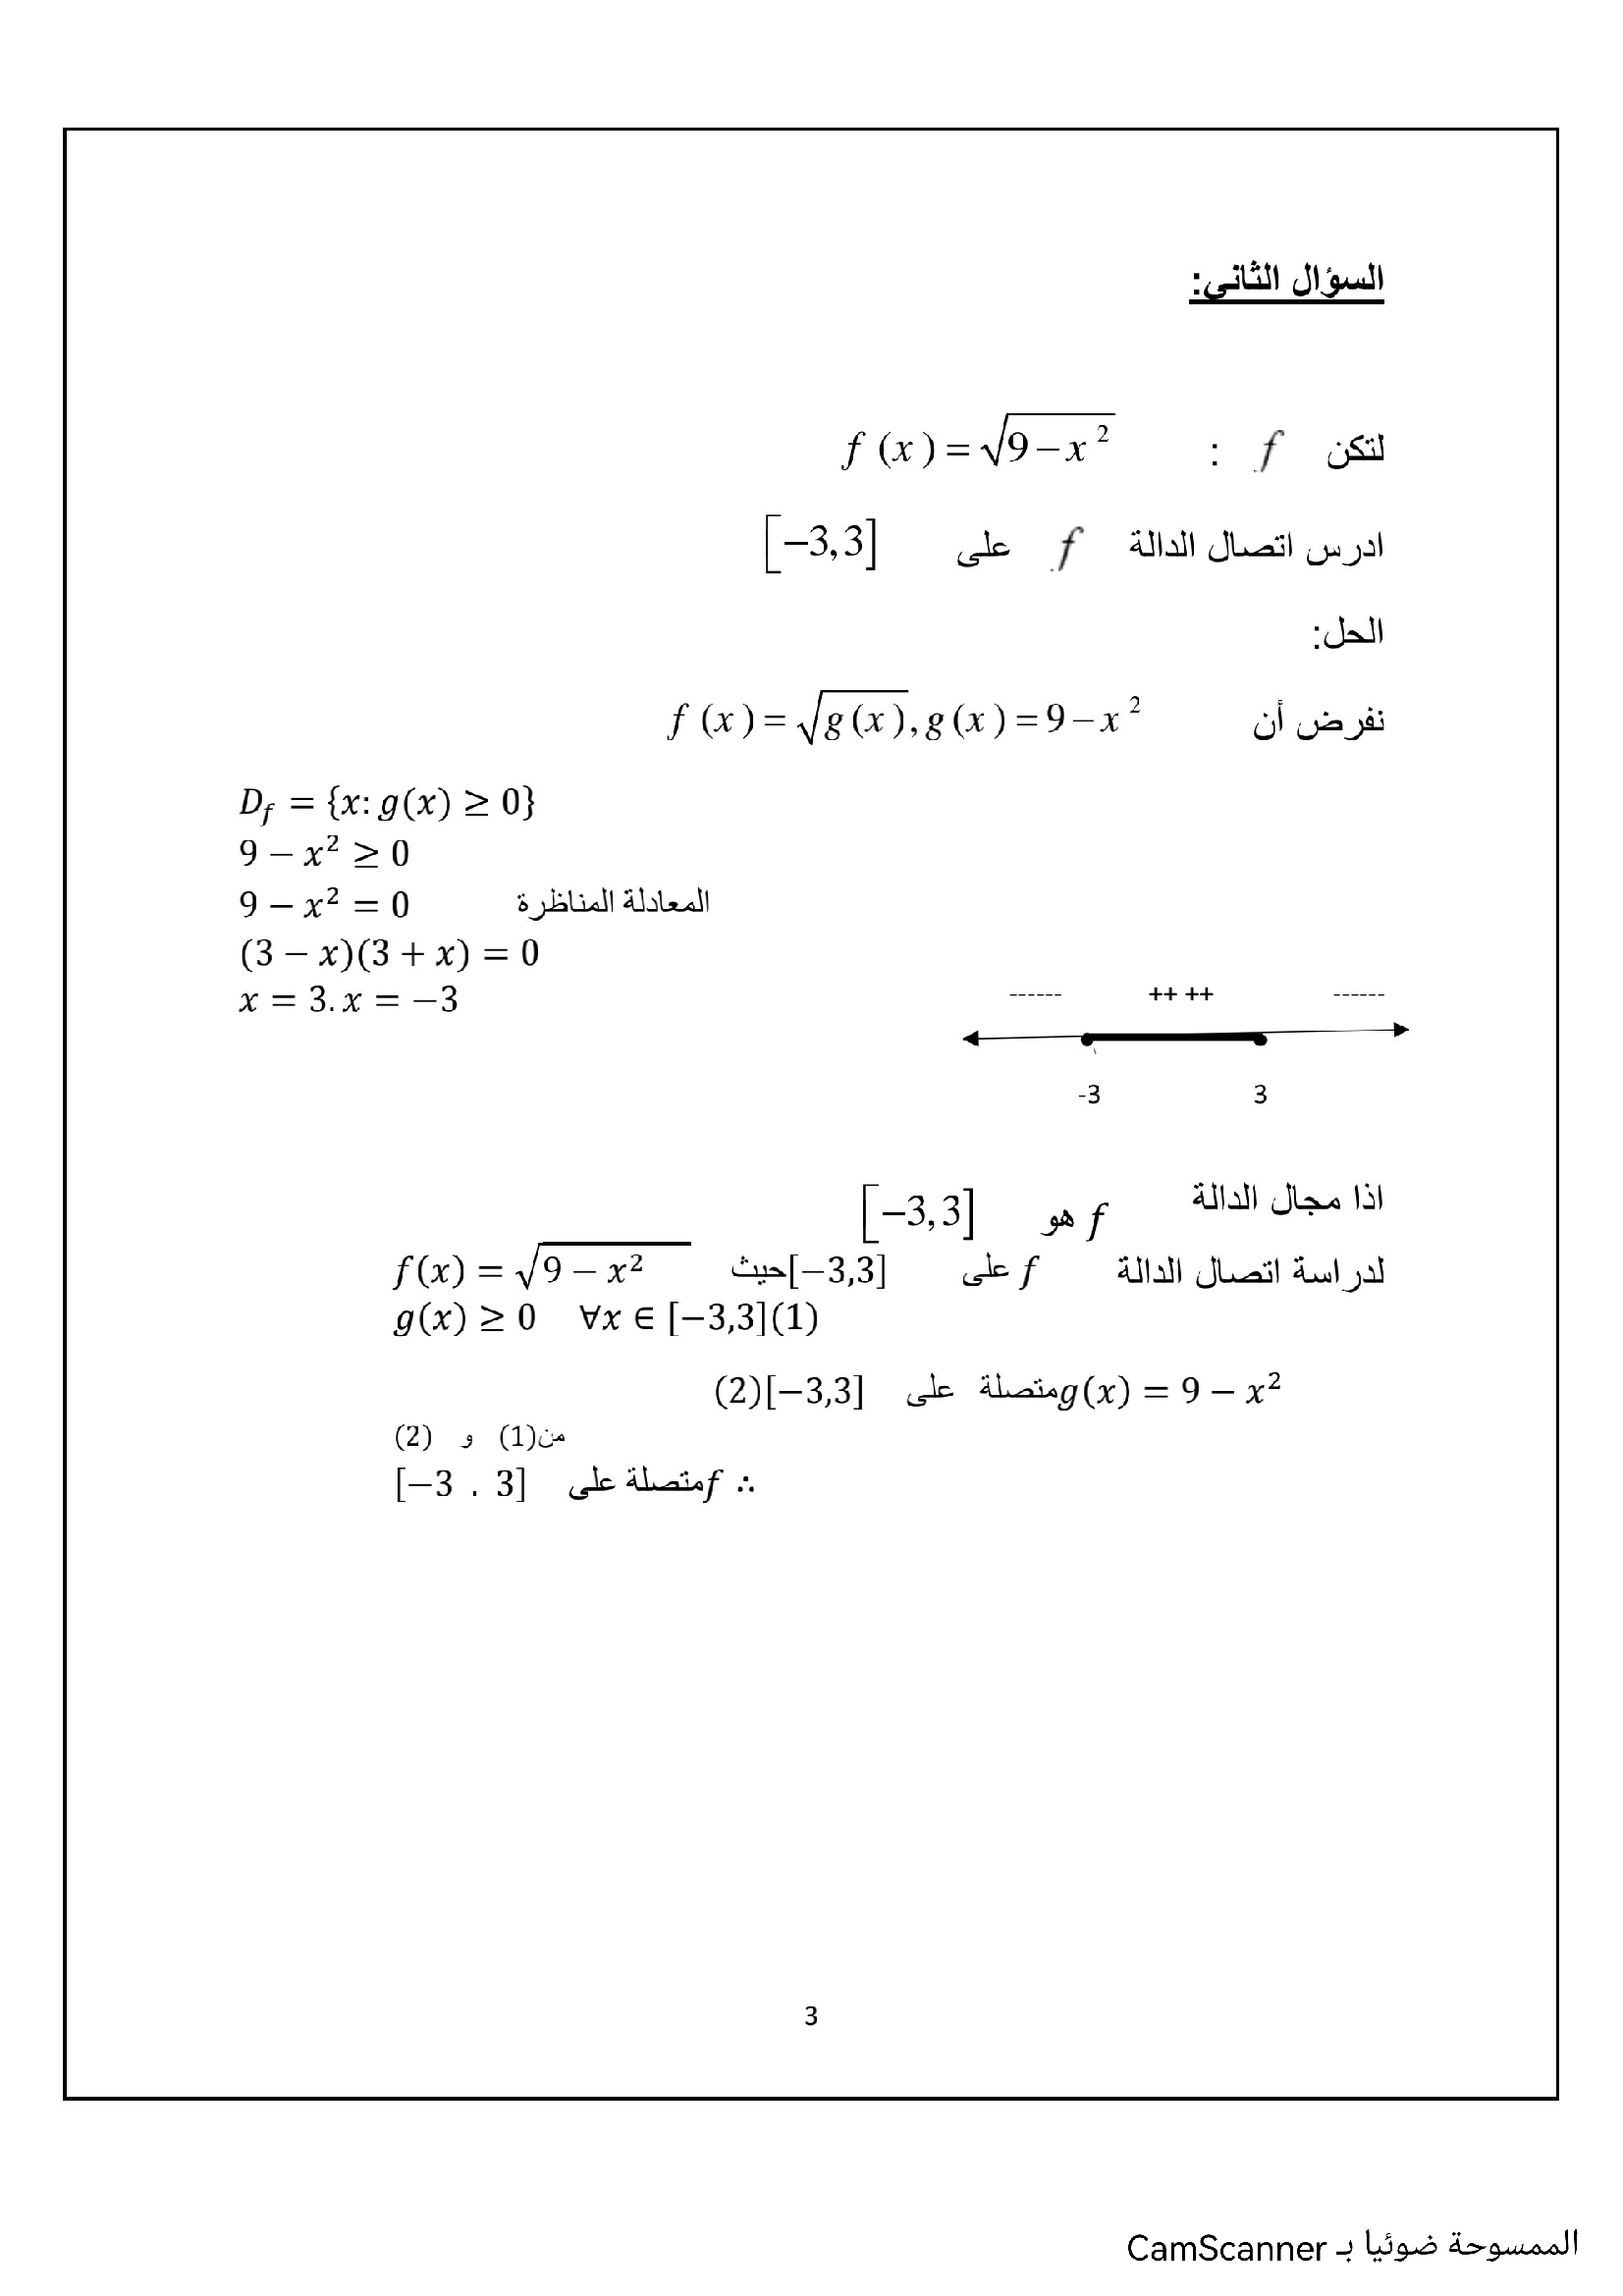 السؤال الثاني:
لتكن f : f (x) = √9 − x²
ادرس اتصال الدالة f على [−3,3]
الحل:
نفرض أن f (x) = √g (x), g (x) = 9 − x²
D_f = {x: g(x) ≥ 0}
9 − x² ≥ 0
9 − x² = 0 المعادلة المناظرة
(3 − x)(3 + x) = 0
x = 3. x = −3
------ ++ ++ ------
-3 3
اذا مجال الدالة f هو [−3,3]
لدراسة اتصال الدالة f على [−3,3] حيث f(x) = √9 − x²
g(x) ≥ 0 ∀x ∈ [−3,3](1)
g(x) = 9 − x² متصلة على [−3,3](2)
من(1) و (2)
∴ f متصلة على [−3 . 3]
3
الممسوحة ضوئيا بـ CamScanner